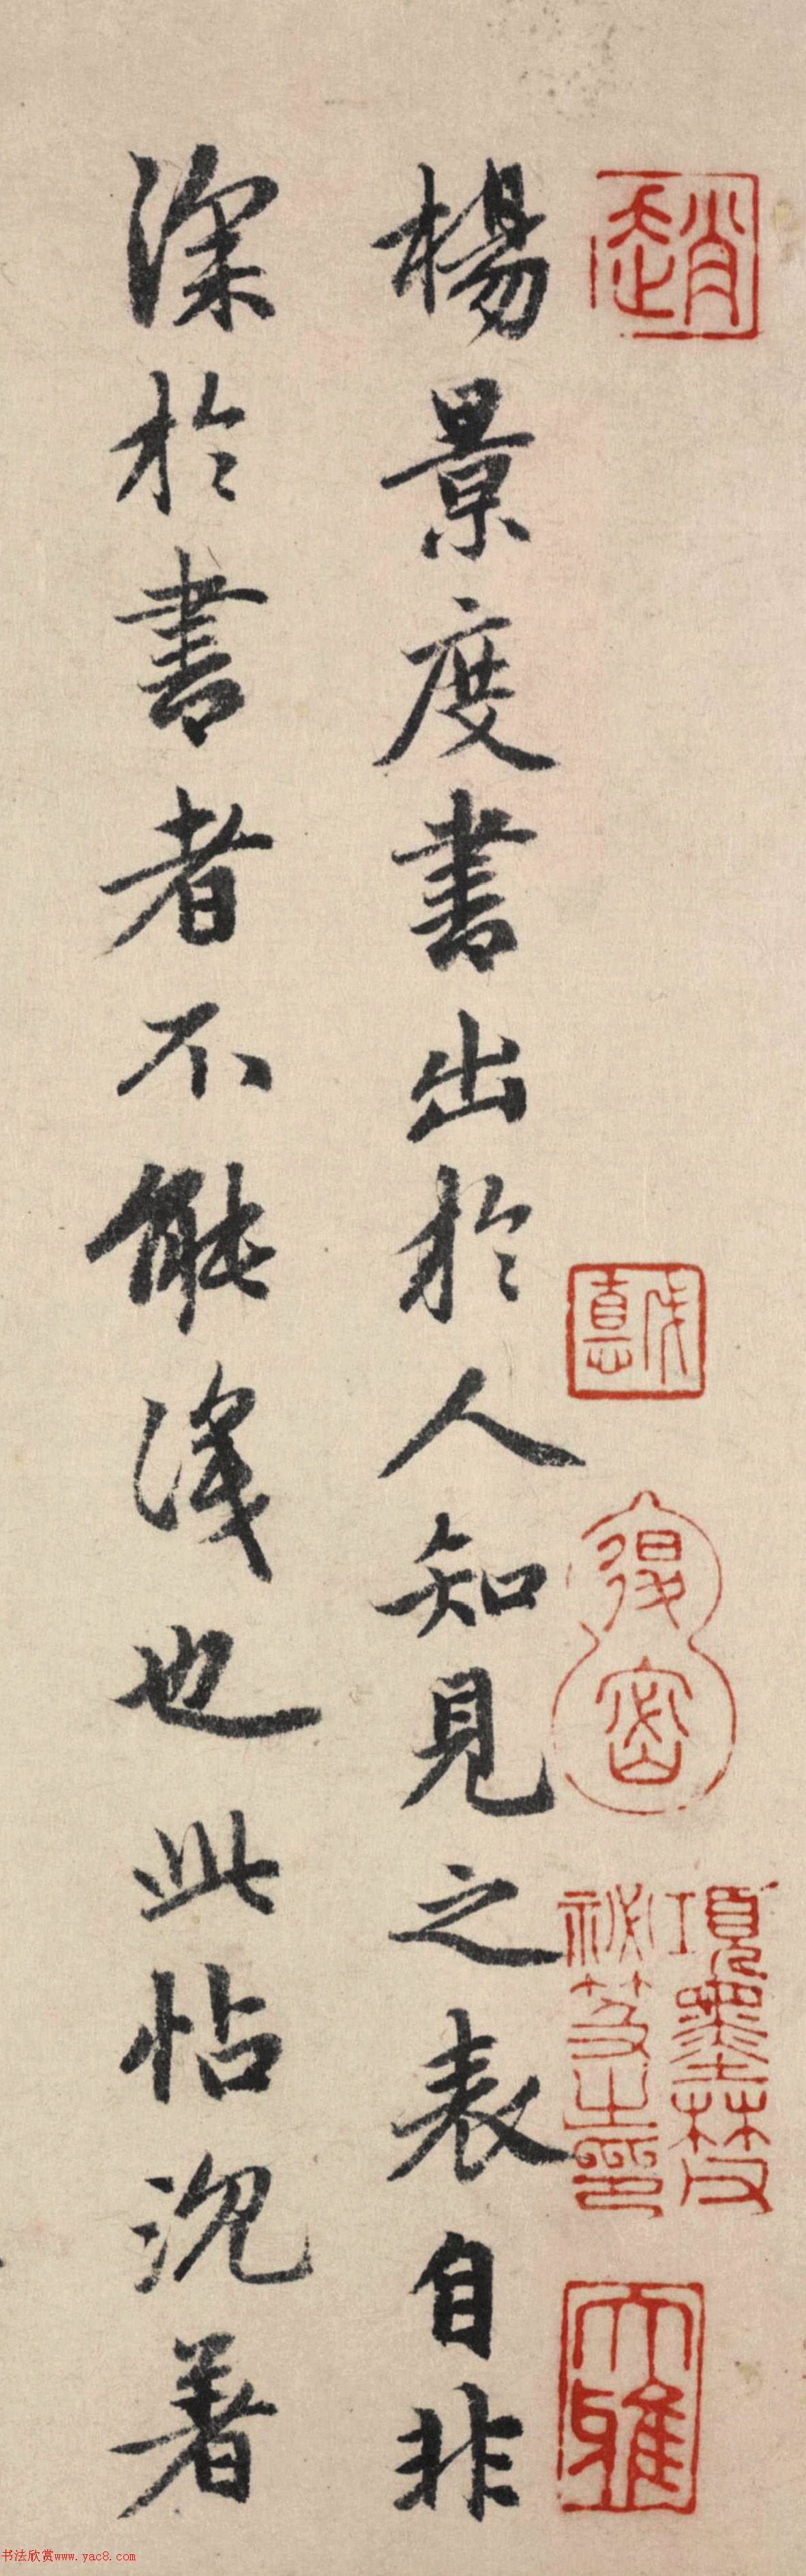 楊景度書出於人知見之表自非
深於書者不能淺也此帖沉著
趙
項墨林父
祕笈之印
大雅
书法欣赏www.yac8.com